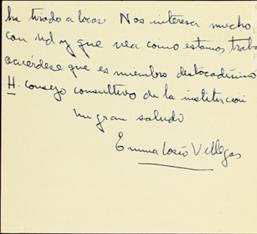 ha tirado a locas. Nos interesa mucho
con Ud y que vea como estamos trab
acuérdese que es miembro destacadísimo
H. consejo consultivo de la institución
un gran saludo
Emma Villegas